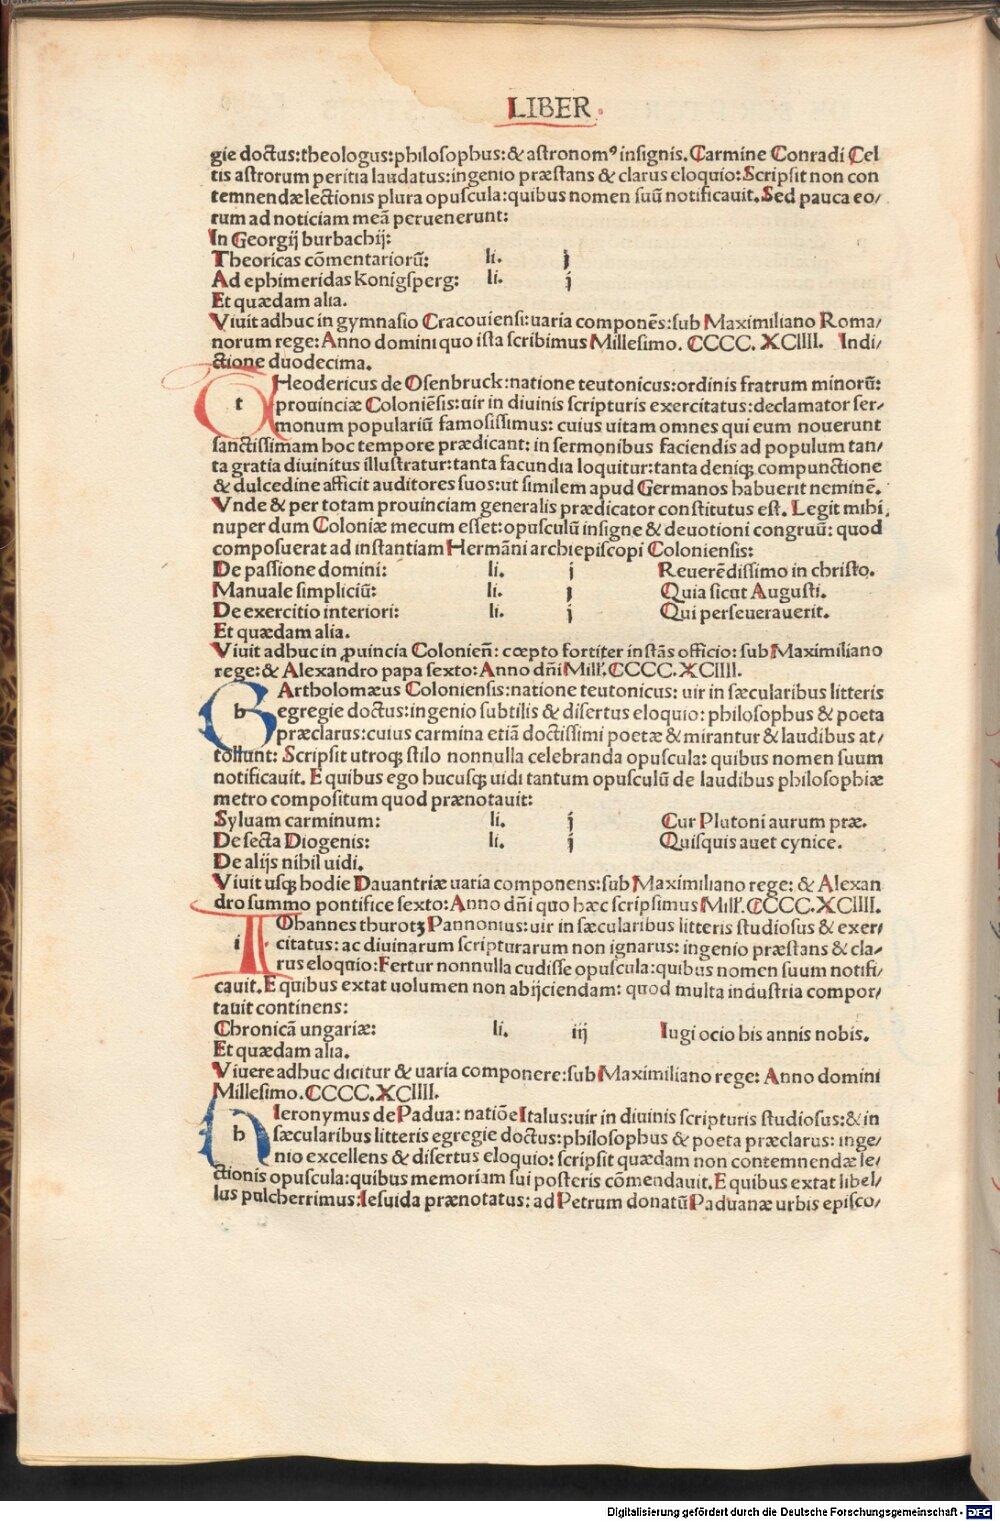 LIBER
gie doctus:theologus:philosophus:& astronomꝰ insignis. Carmine Conradi Cel
tis astrorum peritia laudatus:ingenio præstans & clarus eloquio:Scripsit non con
temnendæ lectionis plura opuscula:quibus nomen suū notificauit. Sed pauca eo/
rum ad noticiam meā peruenerunt:
In Georgij burbachij:
Theoricas cōmentariorū: li. j
Ad ephimeridas Konigsperg: li. j
Et quædam alia.
Viuit adhuc in gymnasio Cracouiensi:uaria componēs:sub Maximiliano Roma/
norum rege: Anno domini quo ista scribimus Millesimo. CCCC. XCIIII. Indi/
ctione duodecima.
t Heodericus de Osenbruck:natione teutonicus:ordinis fratrum minorū:
prouinciæ Coloniēsis:uir in diuinis scripturis exercitatus:declamator ser/
monum populariū famosissimus: cuius uitam omnes qui eum nouerunt
sanctissimam hoc tempore prædicant: in sermonibus faciendis ad populum tan/
ta gratia diuinitus illustratur:tanta facundia loquitur:tanta deniqꝫ compunctione
& dulcedine afficit auditores suos:ut similem apud Germanos habuerit neminē.
Vnde & per totam prouinciam generalis prædicator constitutus est. Legit mihi
nuper dum Coloniæ mecum esset:opusculū insigne & deuotioni congruū: quod
composuerat ad instantiam Hermāni archiepiscopi Coloniensis:
De passione domini: li. j Reuerēdissimo in christo.
Manuale simpliciū: li. j Quia sicut Augusti.
De exercitio interiori: li. j Qui perseuerauerit.
Et quædam alia.
Viuit adhuc in ꝓuincia Colonieñ: cœpto fortiter instās officio: sub Maximiliano
rege: & Alexandro papa sexto: Anno dñi Mill'. CCCC. XCIIII.
b Artholomæus Coloniensis:natione teutonicus: uir in sæcularibus litteris
egregie doctus:ingenio subtilis & disertus eloquio: philosophus & poeta
præclarus:cuius carmina etiā doctissimi poetæ & mirantur & laudibus at/
tollunt: Scripsit utroqꝫ stilo nonnulla celebranda opuscula: quibus nomen suum
notificauit. E quibus ego hucusqꝫ uidi tantum opusculū de laudibus philosophiæ
metro compositum quod prænotauit:
Syluam carminum: li. j Cur Plutoni aurum præ.
De secta Diogenis: li. j Quisquis auet cynice.
De alijs nihil uidi.
Viuit usqꝫ hodie Dauantriæ uaria componens:sub Maximiliano rege: & Alexan
dro summo pontifice sexto: Anno dñi quo hæc scripsimus Mill'. CCCC. XCIIII.
i Ohannes thurotꝫ Pannonius:uir in sæcularibus litteris studiosus & exer/
citatus: ac diuinarum scripturarum non ignarus: ingenio præstans & cla/
rus eloquio:Fertur nonnulla cudisse opuscula:quibus nomen suum notifi/
cauit. E quibus extat uolumen non abijciendam: quod multa industria compor/
tauit continens:
Chronicā ungariæ: li. iij Iugi ocio his annis nobis.
Et quædam alia.
Viuere adhuc dicitur & uaria componere:sub Maximiliano rege: Anno domini
Millesimo. CCCC. XCIIII.
h Ieronymus de Padua: natiōe Italus:uir in diuinis scripturis studiosus:& in
sæcularibus litteris egregie doctus:philosophus & poeta præclarus: inge/
nio excellens & disertus eloquio: scripsit quædam non contemnendæ le/
ctionis opuscula:quibus memoriam sui posteris cōmendauit. E quibus extat libel/
lus pulcherrimus:Iesuida prænotatus: ad Petrum donatū Paduanæ urbis episco/
Digitalisierung gefördert durch die Deutsche Forschungsgemeinschaft - DFG